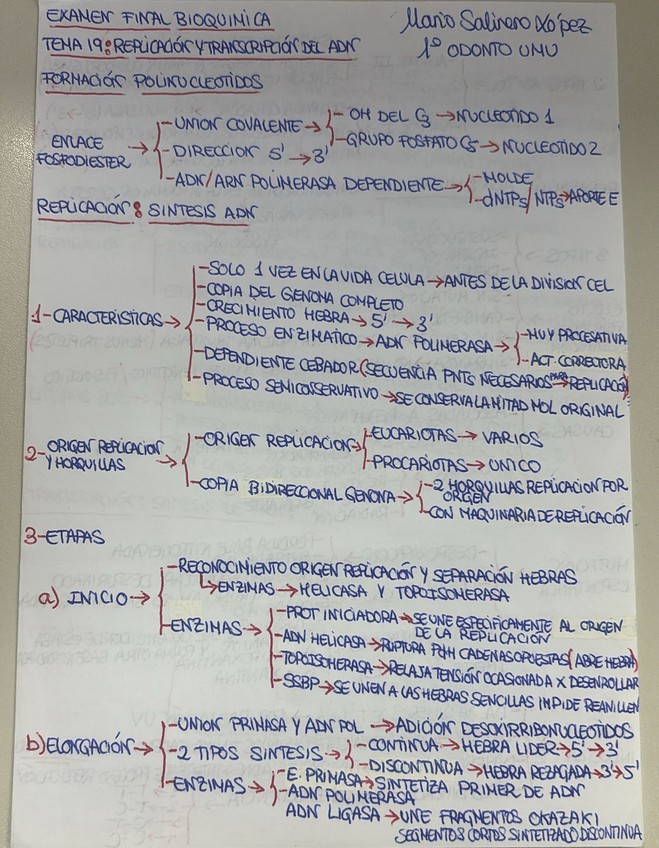 EXAMEN FINAL BIOQUINICA
Mario Salinero López
TEMA 19: REPLICACIÓN Y TRANSCRIPCIÓN DEL ADN
1º ODONTO UMU
FORMACIÓN POLINUCLEOTIDOS
ENLACE FOSFODIESTER →
-UNION COVALENTE →
-OH DEL C3 → NUCLEOTIDO 1
-GRUPO FOSFATO C5 → NUCLEOTIDO 2
-DIRECCION 5' → 3'
-ADN/ARN POLIMERASA DEPENDIENTE →
-MOLDE
-dNTPs/NTPs → APORTE E
REPLICACION: SINTESIS ADN
1-CARACTERISTICAS →
-SOLO 1 VEZ EN LA VIDA CELULA → ANTES DE LA DIVISION CEL
-COPIA DEL GENOMA COMPLETO
-CRECIMIENTO HEBRA → 5' → 3'
-PROCESO ENZIMATICO → ADN POLIMERASA →
-MUY PROCESATIVA
-ACT CORRECTORA
-DEPENDIENTE CEBADOR (SECUENCIA PNTS NECESARIOS PARA REPLICACIÓN)
-PROCESO SEMICONSERVATIVO → SE CONSERVA LA MITAD MOL ORIGINAL
2-ORIGEN REPLICACION Y HORQUILLAS →
-ORIGEN REPLICACION →
-EUCARIOTAS → VARIOS
-PROCARIOTAS → UNICO
-COPIA BIDIRECCIONAL GENOMA →
-2 HORQUILLAS REPLICACION POR
ORIGEN
-CON MAQUINARIA DE REPLICACIÓN
3-ETAPAS
a) INICIO →
-RECONOCIMIENTO ORIGEN REPLICACIÓN Y SEPARACIÓN HEBRAS
↳ ENZIMAS → HELICASA Y TOPOISOMERASA
-ENZIMAS →
-PROT INICIADORA → SE UNE ESPECIFICAMENTE AL ORIGEN
DE LA REPLICACIÓN
-ADN HELICASA → RUPTURA PtH CADENAS OPUESTAS (ABRE HEBRA)
-TOPOISOMERASA → RELAJA TENSIÓN OCASIONADA X DESENROLLAR
-SSBP → SE UNEN A LAS HEBRAS SENCILLAS IMPIDE REANILLEN
b) ELONGACIÓN →
-UNION PRIMASA Y ADN POL → ADICIÓN DESOXIRRIBONUCLEOTIDOS
-2 TIPOS SINTESIS →
-CONTINUA → HEBRA LIDER → 5' → 3'
-DISCONTINUA → HEBRA REZAGADA → 3' → 5'
-ENZIMAS →
-E. PRIMASA → SINTETIZA PRIMER DE ADN
-ADN POLIMERASA
ADN LIGASA → UNE FRAGMENTOS OKAZAKI
SEGMENTOS CORTOS SINTETIZADO DISCONTINUA